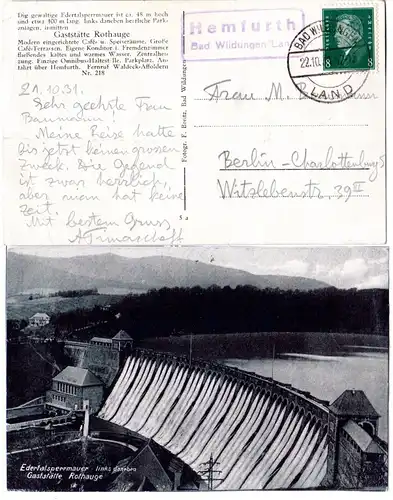 Die gewaltige Edertalsperrmauer ist ca. 48 m hoch
und etwa 400 m lang. links daneben herrliche Park-
anlagen, inmitten
Gaststätte Rothauge
Modern eingerichtete Café- u. Speiseräume. Große
Café-Terrassen. Eigene Konditor i. Fremdenzimmer
fließendes kaltes und warmes Wasser. Zentralhei-
zung. Einzige Omnibus-Haltest lle. Parkplatz. An-
fahrt über Hemfurth. Fernruf Waldeck-Affoldern
Nr. 218
Hemfurth
Bad Wildungen Land
BAD WILDUNGEN
22.10.
LAND
8 8
21.10.31.
Sehr geehrte Frau
Baumann!
Meine Reise hatte
bis jetzt keinen grossen
Zweck. Die Gegend
ist zwar herrlich,
aber man hat keine
Zeit.
Mit bestem Gruss
Frau M.
Berlin-Charlottenburg 5
Witzlebenstr. 39 III
Fotogr. F. Bootz, Bad Wildungen
5 a
Edertalsperrmauer links daneben
Gaststätte Rothauge